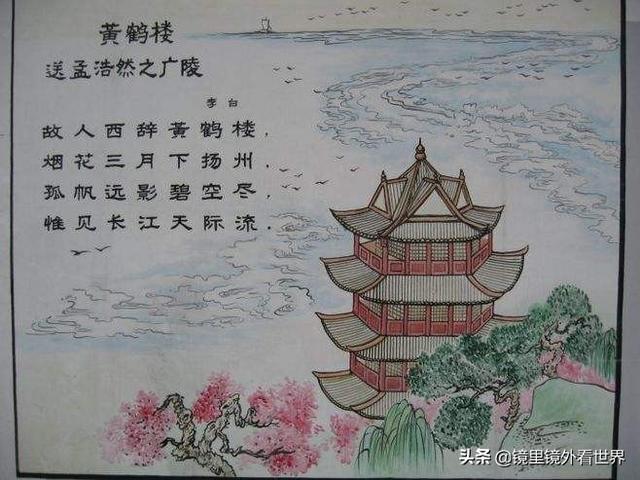 黄鹤楼
送孟浩然之广陵
李白
故人西辞黄鹤楼，
烟花三月下扬州．
孤帆远影碧空尽，
惟见长江天际流．
头条 @镜里镜外看世界